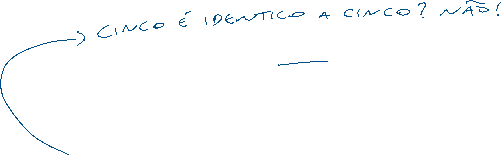 CINCO É IDENTICO A CINCO? NÃO!